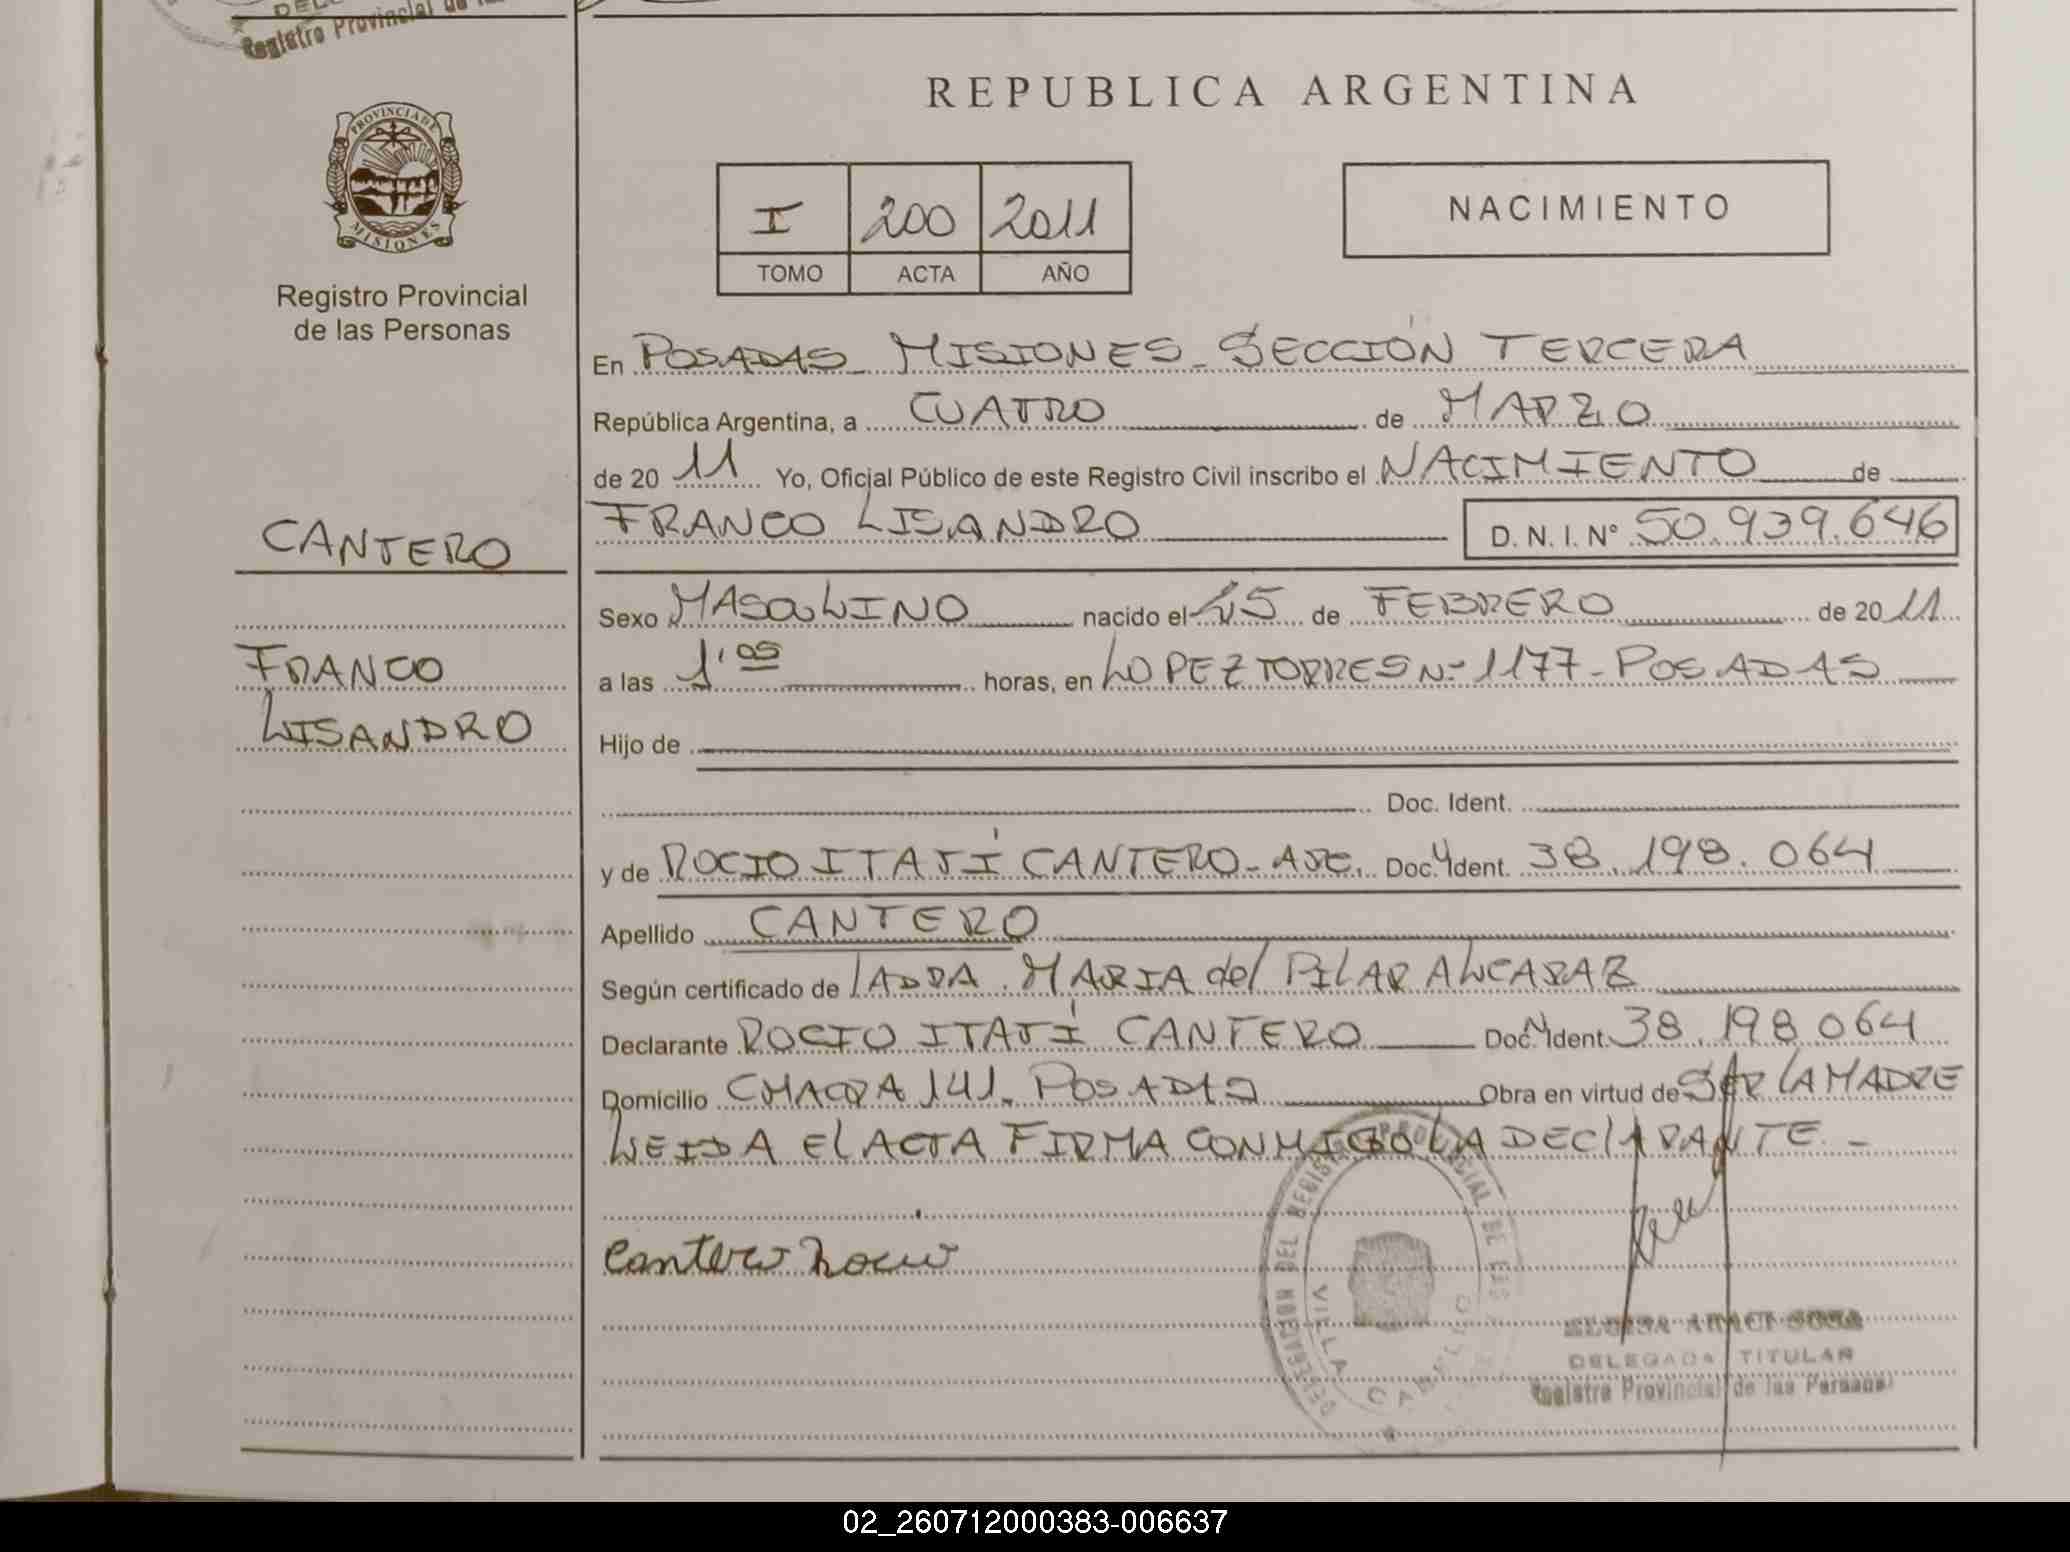 Registro Provincial de las
PROVINCIA DE
MISIONES
Registro Provincial
de las Personas
CANTERO
FRANCO
LISANDRO
REPUBLICA ARGENTINA
I 200 2011
TOMO ACTA AÑO
NACIMIENTO
En POSADAS MISIONES - SECCIÓN TERCERA
República Argentina, a CUATRO de MARZO
de 2011 Yo, Oficial Público de este Registro Civil inscribo el NACIMIENTO de
FRANCO LISANDRO D. N. I. Nº 50.939.646
Sexo MASCULINO nacido el 25 de FEBRERO de 2011
a las 1'05 horas, en LOPEZ TORRES Nº 1177 - POSADAS
Hijo de
Doc. Ident.
y de ROCIO ITATÍ CANTERO - ARG. Doc. Ident. 38.198.064
Apellido CANTERO
Según certificado de LADRA. MARIA del PILAR ALCARAZ
Declarante ROCIO ITATÍ CANTERO Doc. Ident. 38.198.064
Domicilio CHACRA 141. POSADAS Obra en virtud de SER LA MADRE
LEIDA El ACTA FIRMA CONMIGO LA DEClARANTE. -
Cantero Rocio
DELEGACION DEL REGISTRO PROVINCIAL DE
VILLA CABELLO
DELEGADA TITULAR
Registro Provincial de las Personas
02_260712000383-006637